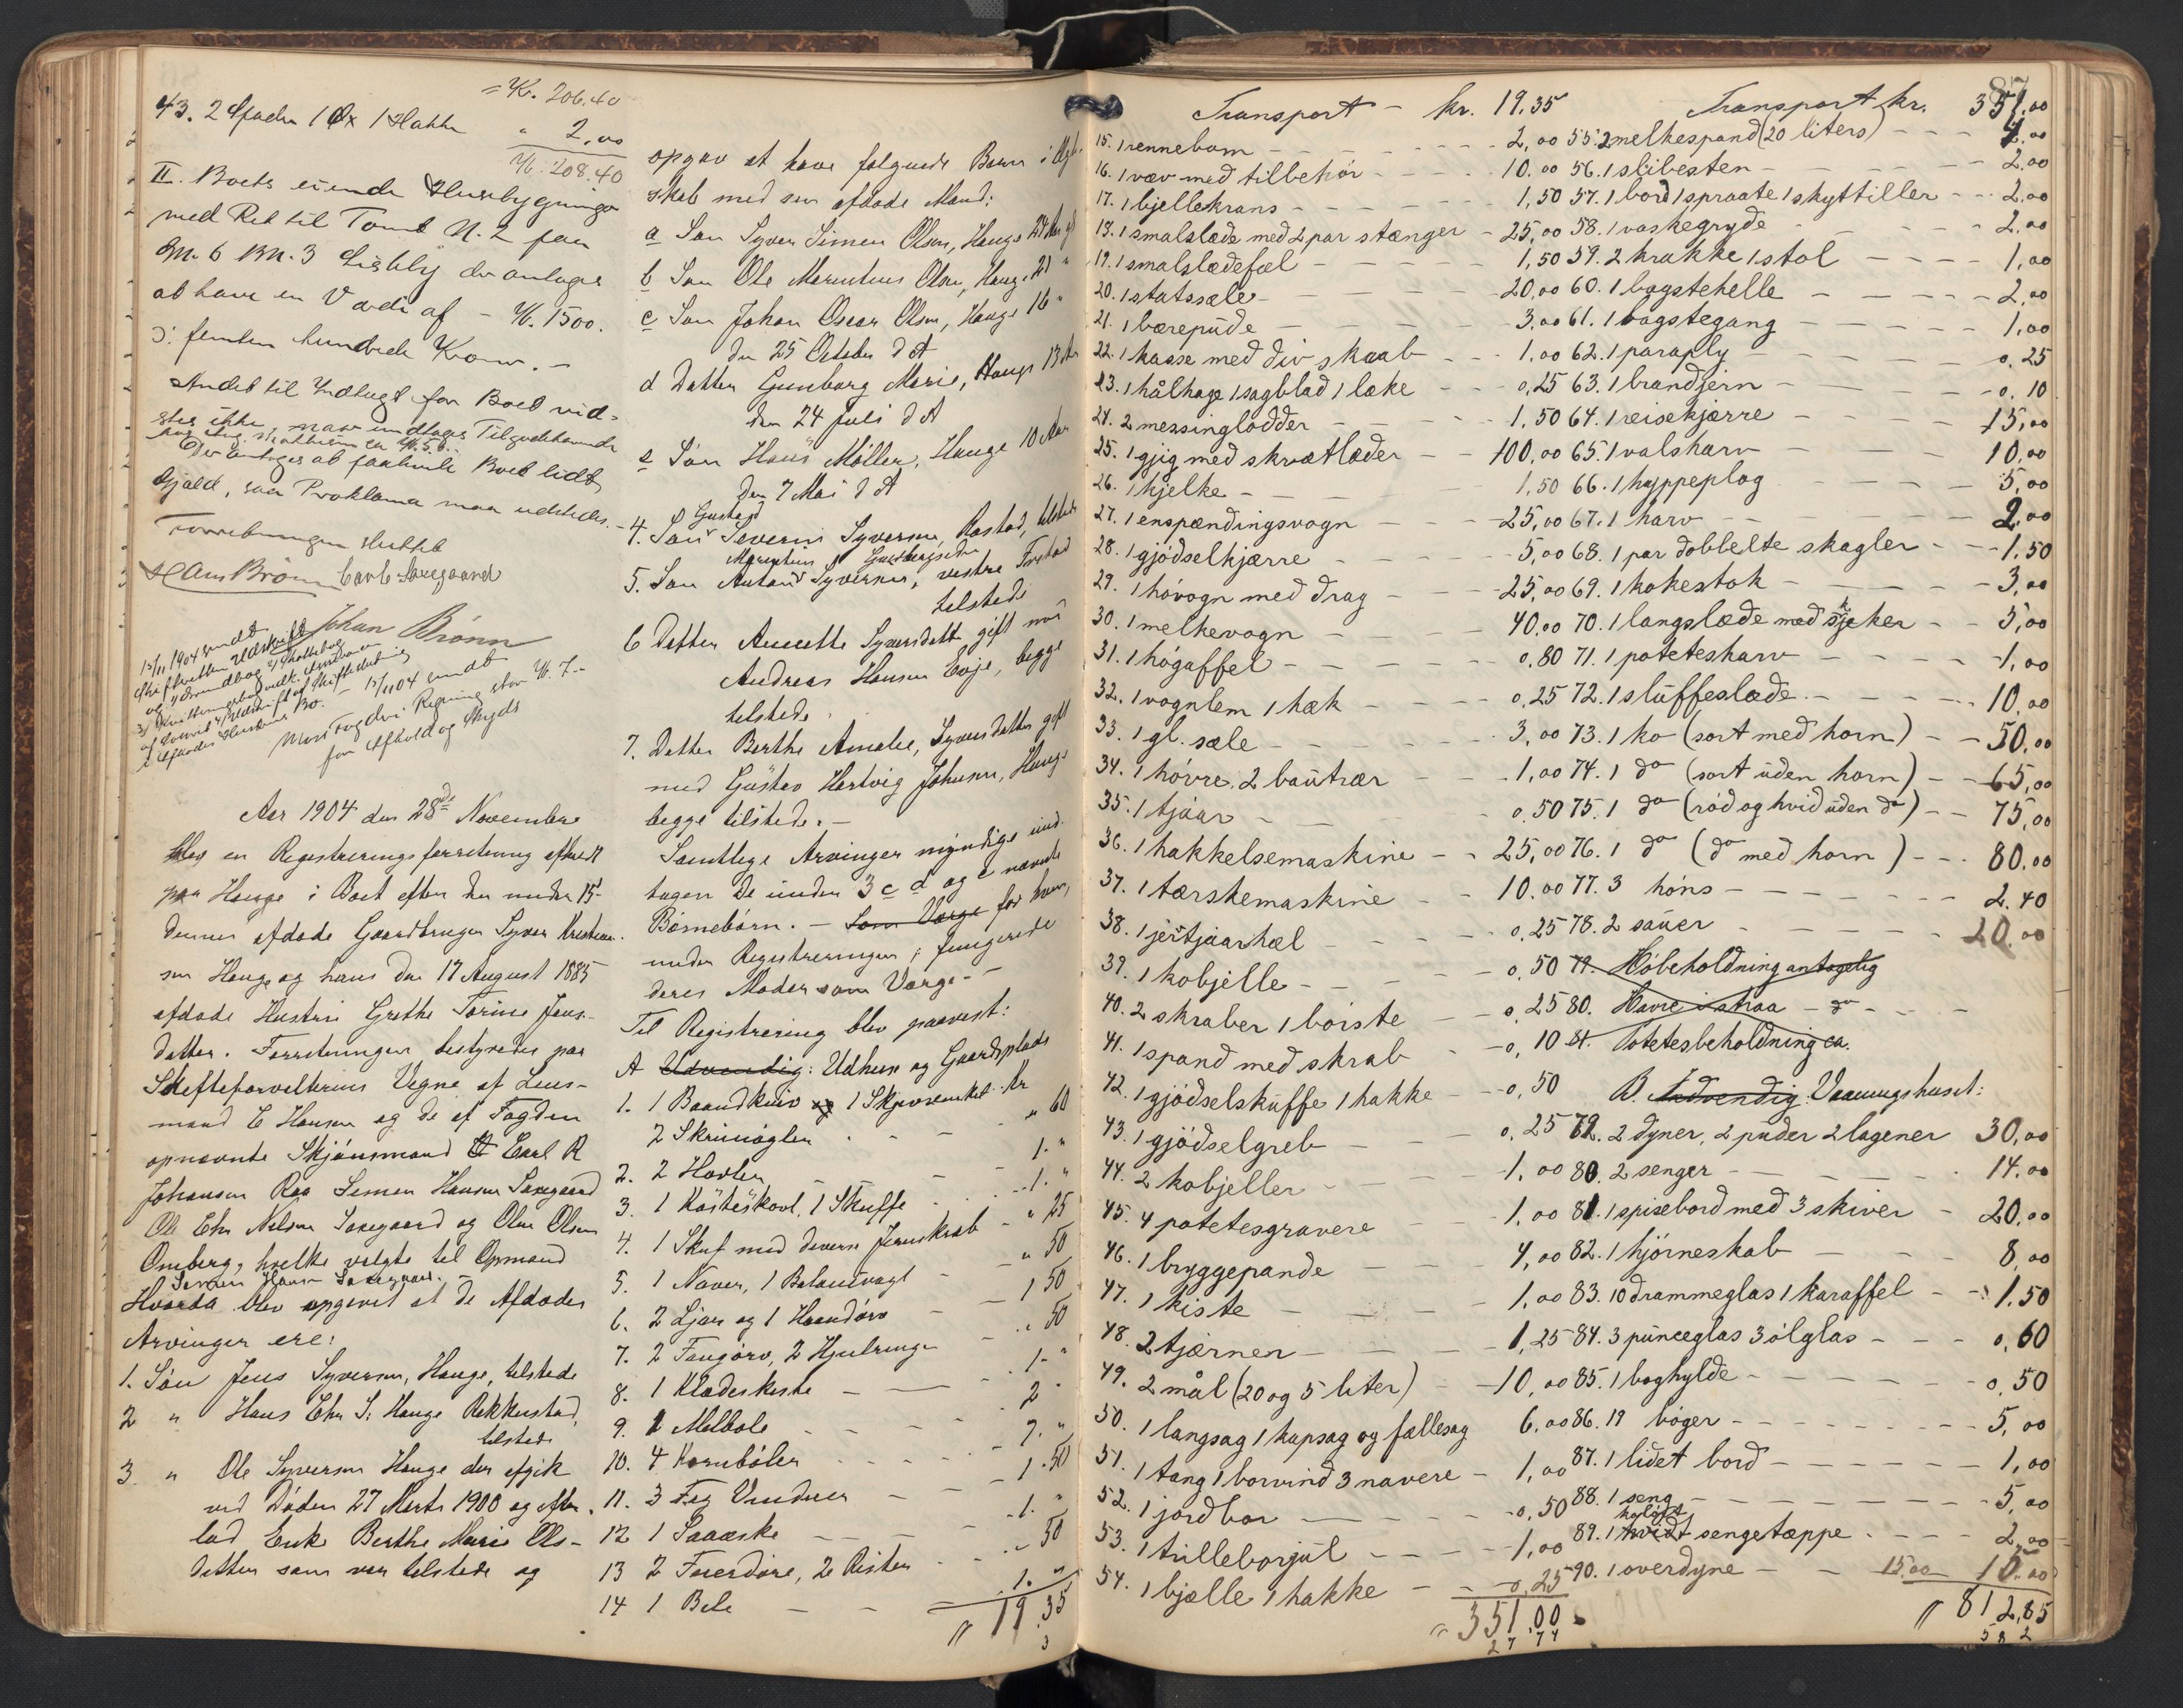 = Kr. 206.40
43. 2 Spader 1 Øx 1 Hakke " 2,00
Kr. 208.40
II. Boets eiende Husbygninger
med Ret til Tomt N. 2 paa
Gn. 6 Bn. 3 der antages
at have en Værdi af - Kr. 1500.
ɔ: femten hundrede Kroner. -
Andet til Indtægt for Boet vid-
stes ikke, naar undtages Tilgodehavende
Kr. 5.6
Der antages at paahvile Boet lidt
Gjæld, saa Proklama maa udstedes. -
Forretningen sluttet
Hans Brønn Carl Saxegaard
Johan Brønn
15/11 1904 sendt
Skifteretten Udskrift
15/11 04 sendt
Regning stor Kr. 7.-
for Afhold og Skyds
Aar 1904 den 28de November
blev en Registreringsforretning afholdt
paa Hauge i Boet efter den under 15
dennes afdøde Gaardbruger Syver Kristian-
sen Hauge og hans den 17 August 1885
afdøde Hustru Grethe Torine Jens-
datter. Forretningen bestyredes paa
Skifteforvalterens Vegne af Lens-
mand E Hansen og de af Fogden
opnævnte Skjønsmænd Carl R
Johansen Raa Simen Hansen Saxegaard
Ole Chr Nilsen Saxegaard og Olaf Olsen
Omberg, hvilke valgte til Opmand
Simen Hansen Saxegaard. -
Hvorda blev opgivet at de Afdødes
Arvinger ere:
1. Søn Jens Syversen, Hauge, tilstede
2 " Hans Chr S: Hauge Rakkestad,
tilstede
3 " Ole Syversen Hauge der afgik
ved Døden 27 Marts 1900 og efter-
lod Enke Berthe Marie Ols-
datter som var tilstede og
opgav at have følgende Børn i Ægte-
skab med sin afdøde Mand:
a Søn Syver Simen Olsen, Hauge 24 Aar gl
b Søn Ole Marentius Olsen, Hauge 21 "
c Søn Johan Oscar Olsen, Hauge 16 "
den 25 Octbr d A
d Datter Gunborg Marie, Hauge 13 Aar
den 24 Juli d A
e Søn Hans Møller, Hauge 10 Aar
den 7 Mai d A
Gustav
4. Søn Severin Syversen, Rostad, tilstede
Marentius
5. Søn Anton Syversen, vestre
tilstede
6 Datter Annette Syversdatter gift med
Andreas Hansen Evje, begge
tilstede.
7. Datter Berthe Amalie, Syversdatter gift
med Gustav Hartvig Johansen, Hauge
begge tilstede. -
Samtlige Arvinger myndige und-
tagen de under 3 c d og e nævnte
Børnebørn. - Som Værge for hvem,
under Registreringen; fungerede
deres Moder som Værge -
Til Registrering blev paavist:
A Udvendig: Udhuse og Gaardsplads
1. 1 Baandkniv og 1 Kr
2 Skrunøgler " 60
2. 2 Høvler 1. "
3. 1 Kasteskovl, 1 Skuffe 1. "
4. 1 Skuf med diverse Jernskrab " 25
5. 1 Naver, 1 Balancevægt " 50
6. 2 Ljaer og 1 Haandørv 1 50
7. 2 Langørv, 2 Hjulringe " 50
8. 1 Klædeskiste 1. "
9. 1 Melbole 2 "
10. 4 Kornbøler 7. "
11. 3 1.50
12 1 Saaæske 1. "
13 2 2 Rister " 50
14 1 Bele 1. "
" 19.35
3
87
Transport - kr. 19.35
15. 1 rennebom - 2,00
16. 1 væv med tilbehør - 10.00
17. 1 bjellekrans - 1,50
18. 1 smalslæde med 2 par stænger - 25,00
19. 1 smalslædefæl - 1,50
20. 1 statssæle - 20,00
21. 1 bærepude - 3,00
22. 1 kasse med div skaab - 1,00
23. 1 hålhage 1 sagblad 1 lake - 0,25
24. 2 messinglodder - 1,50
25. 1 gjig med skvætlæder - 100,00
26. 1 kjelke - 1,50
27. 1 enspændingsvogn - 25,00
28. 1 gjødselkjærre - 5,00
29. 1 høvogn med drag - 25,00
30. 1 melkevogn - 40,00
31. 1 høgaffel - 0,80
32. 1 vognlem 1 hæk - 0,25
33. 1 gl. sæle - 3,00
34. 1 høvre, 2 bautrær - 1,00
35. 1 tjaar - 0,50
36. 1 hakkelsemaskine - 25,00
37. 1 tærskemaskine - 10.00
38. 1 jerntjaarhæl - 0,25
39. 1 kobjelle - 0,50
40. 2 skraber 1 børste - 0,25
41. 1 spand med skrab - 0,10
42. 1 gjødselskuffe 1 hakke - 0,50
43. 1 gjødselgreb - 0,25
44. 2 kobjeller - 1,00
45. 4 potetesgravere - 1,00
46. 1 bryggepande - 4,00
47. 1 kiste - 1,00
48. 2 tjærner - 1,25
49. 2 mål (20 og 5 liter) - 10,00
50. 1 langsag 1 kapsag og fællesag 6,00
51. 1 tang 1 borvind 3 navere - 1,00
52. 1 jordbor - 0,50
53. 1 trilleborjul - 1,00
54. 1 bjælle 1 hakke - 0,25
" 351,00
27 74
Transport kr. 351.00
55. 2 melkespand (20 liters) - 4.00
56. 1 slibesten - 2.00
57. 1 bord 1 spraate 1 skyttiller - 2.00
58. 1 vaskegryde - 2,00
59. 2 krakke 1 stol - 1,00
60. 1 bagstehelle - 2,00
61. 1 bagstegang - 1,00
62. 1 paraply - 0,25
63. 1 brandjern - 0.10
64. 1 reisekjærre - 15,00
65. 1 valsharv - 10.00
66. 1 hyppeplog - 5,00
67. 1 harv - 2.00
68. 1 par dobbelte skagler - 1.50
69. 1 kakestok - 3,00
70. 1 langslæde med sjeker - 5,00
71. 1 potetesharv - 1,00
72. 1 sluffeslæde - 10,00
73. 1 ko (sort med horn) - 50.00
74. 1 do (sort uden horn) - 65,00
75. 1 do (rød og hvid uden do) - 75,00
76. 1 do (do med horn) - 80.00
77. 3 høns - 2.40
78. 2 sauer - 20.00
79. Høbeholdning antagelig
80. Havre i straa - do -
81. Potetesbeholdning ca.
B. Indvendig. Vaaningshuset:
79. 2 dyner, 2 puder 2 lagener 30,00
80. 2 senger - 14.00
81. 1 spisebord med 3 skiver - 20,00
82. 1 hjørneskab - 8,00
83. 10 drammeglas 1 karaffel - 1.50
84. 3 punceglas 3 ølglas - 0,60
85. 1 boghylde - 0,50
86. 19 bøger - 5,00
87. 1 lidet bord - 1,00
88. 1 seng - 5,00
89. 1 hvidt sengetæppe - 2,00
90. 1 overdyne - 15.00 15.00
" 812,85
58 2